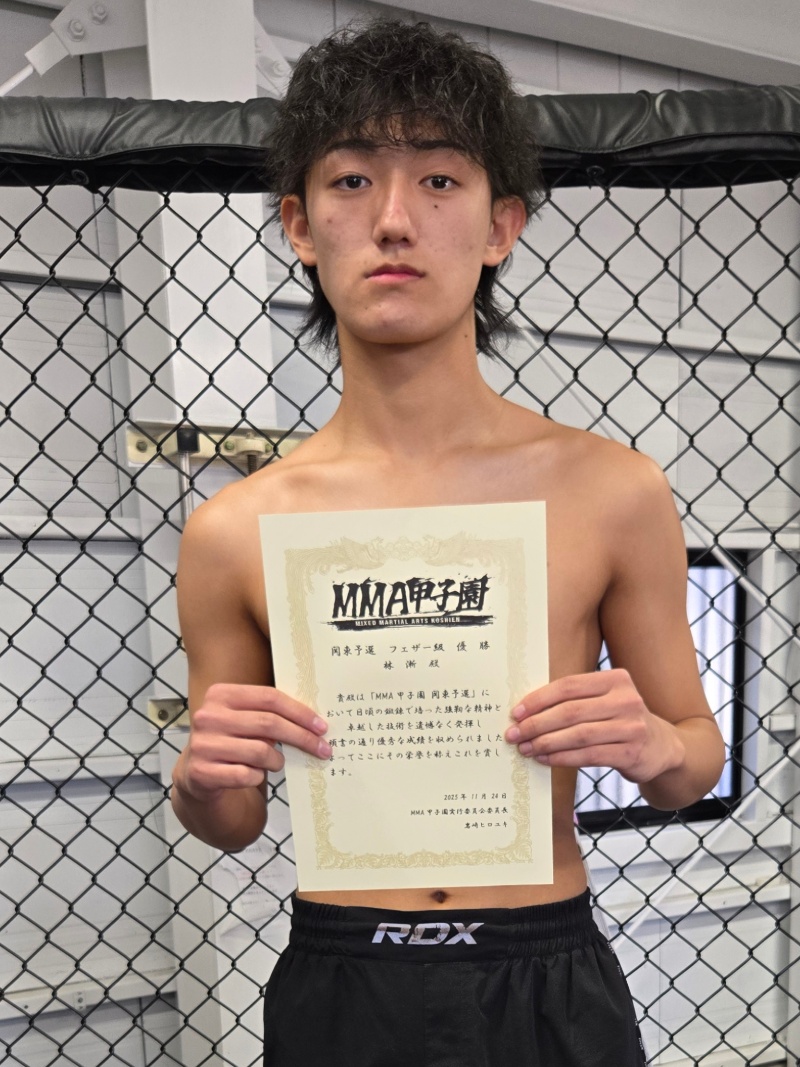 MMA甲子園
MIXED MARTIAL ARTS KOSHIEN
関東予選 フェザー級 優 勝
林 漸 殿
貴殿は「MMA 甲子園 関東予選」に
おいて日頃の鍛錬で培った強靭な精神と
卓越した技術を遺憾なく発揮し
頭書の通り優秀な成績を収められました
よってここにその栄誉を称えこれを賞し
ます。
2025 年 11 月 24 日
MMA 甲子園実行委員会委員長
岩崎ヒロユキ
RDX